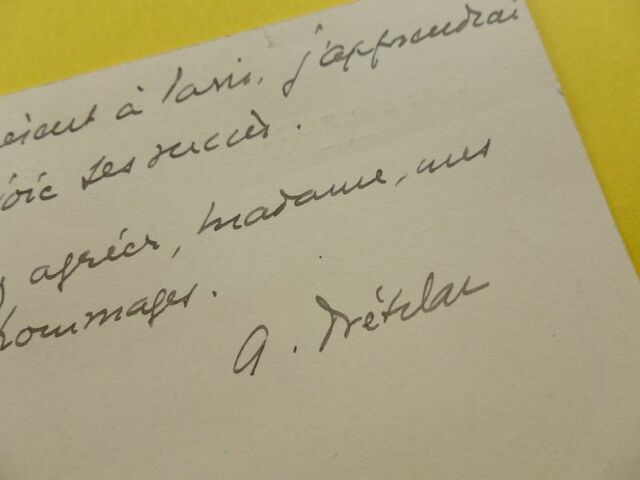 à Paris, j'apprendrai
ses succès.
agréer, madame, mes
hommages.
A. Prételat